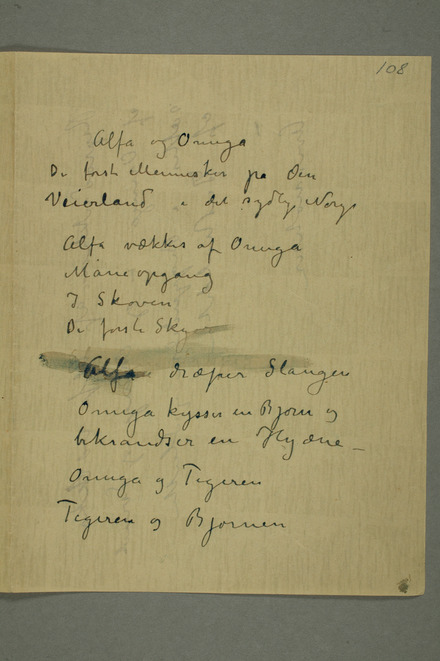 108
Alfa og Omega
De første Mennesker på Øen
Veierland i det sydlige Norge
Alfa vækkes af Omega
Måneopgang
I Skoven
De første Sky
Alfa dræper Slangen
Omega kysser en Bjørn og
bekrandser en Hyæne –
Omega og Tigeren
Tigeren og Bjørnen